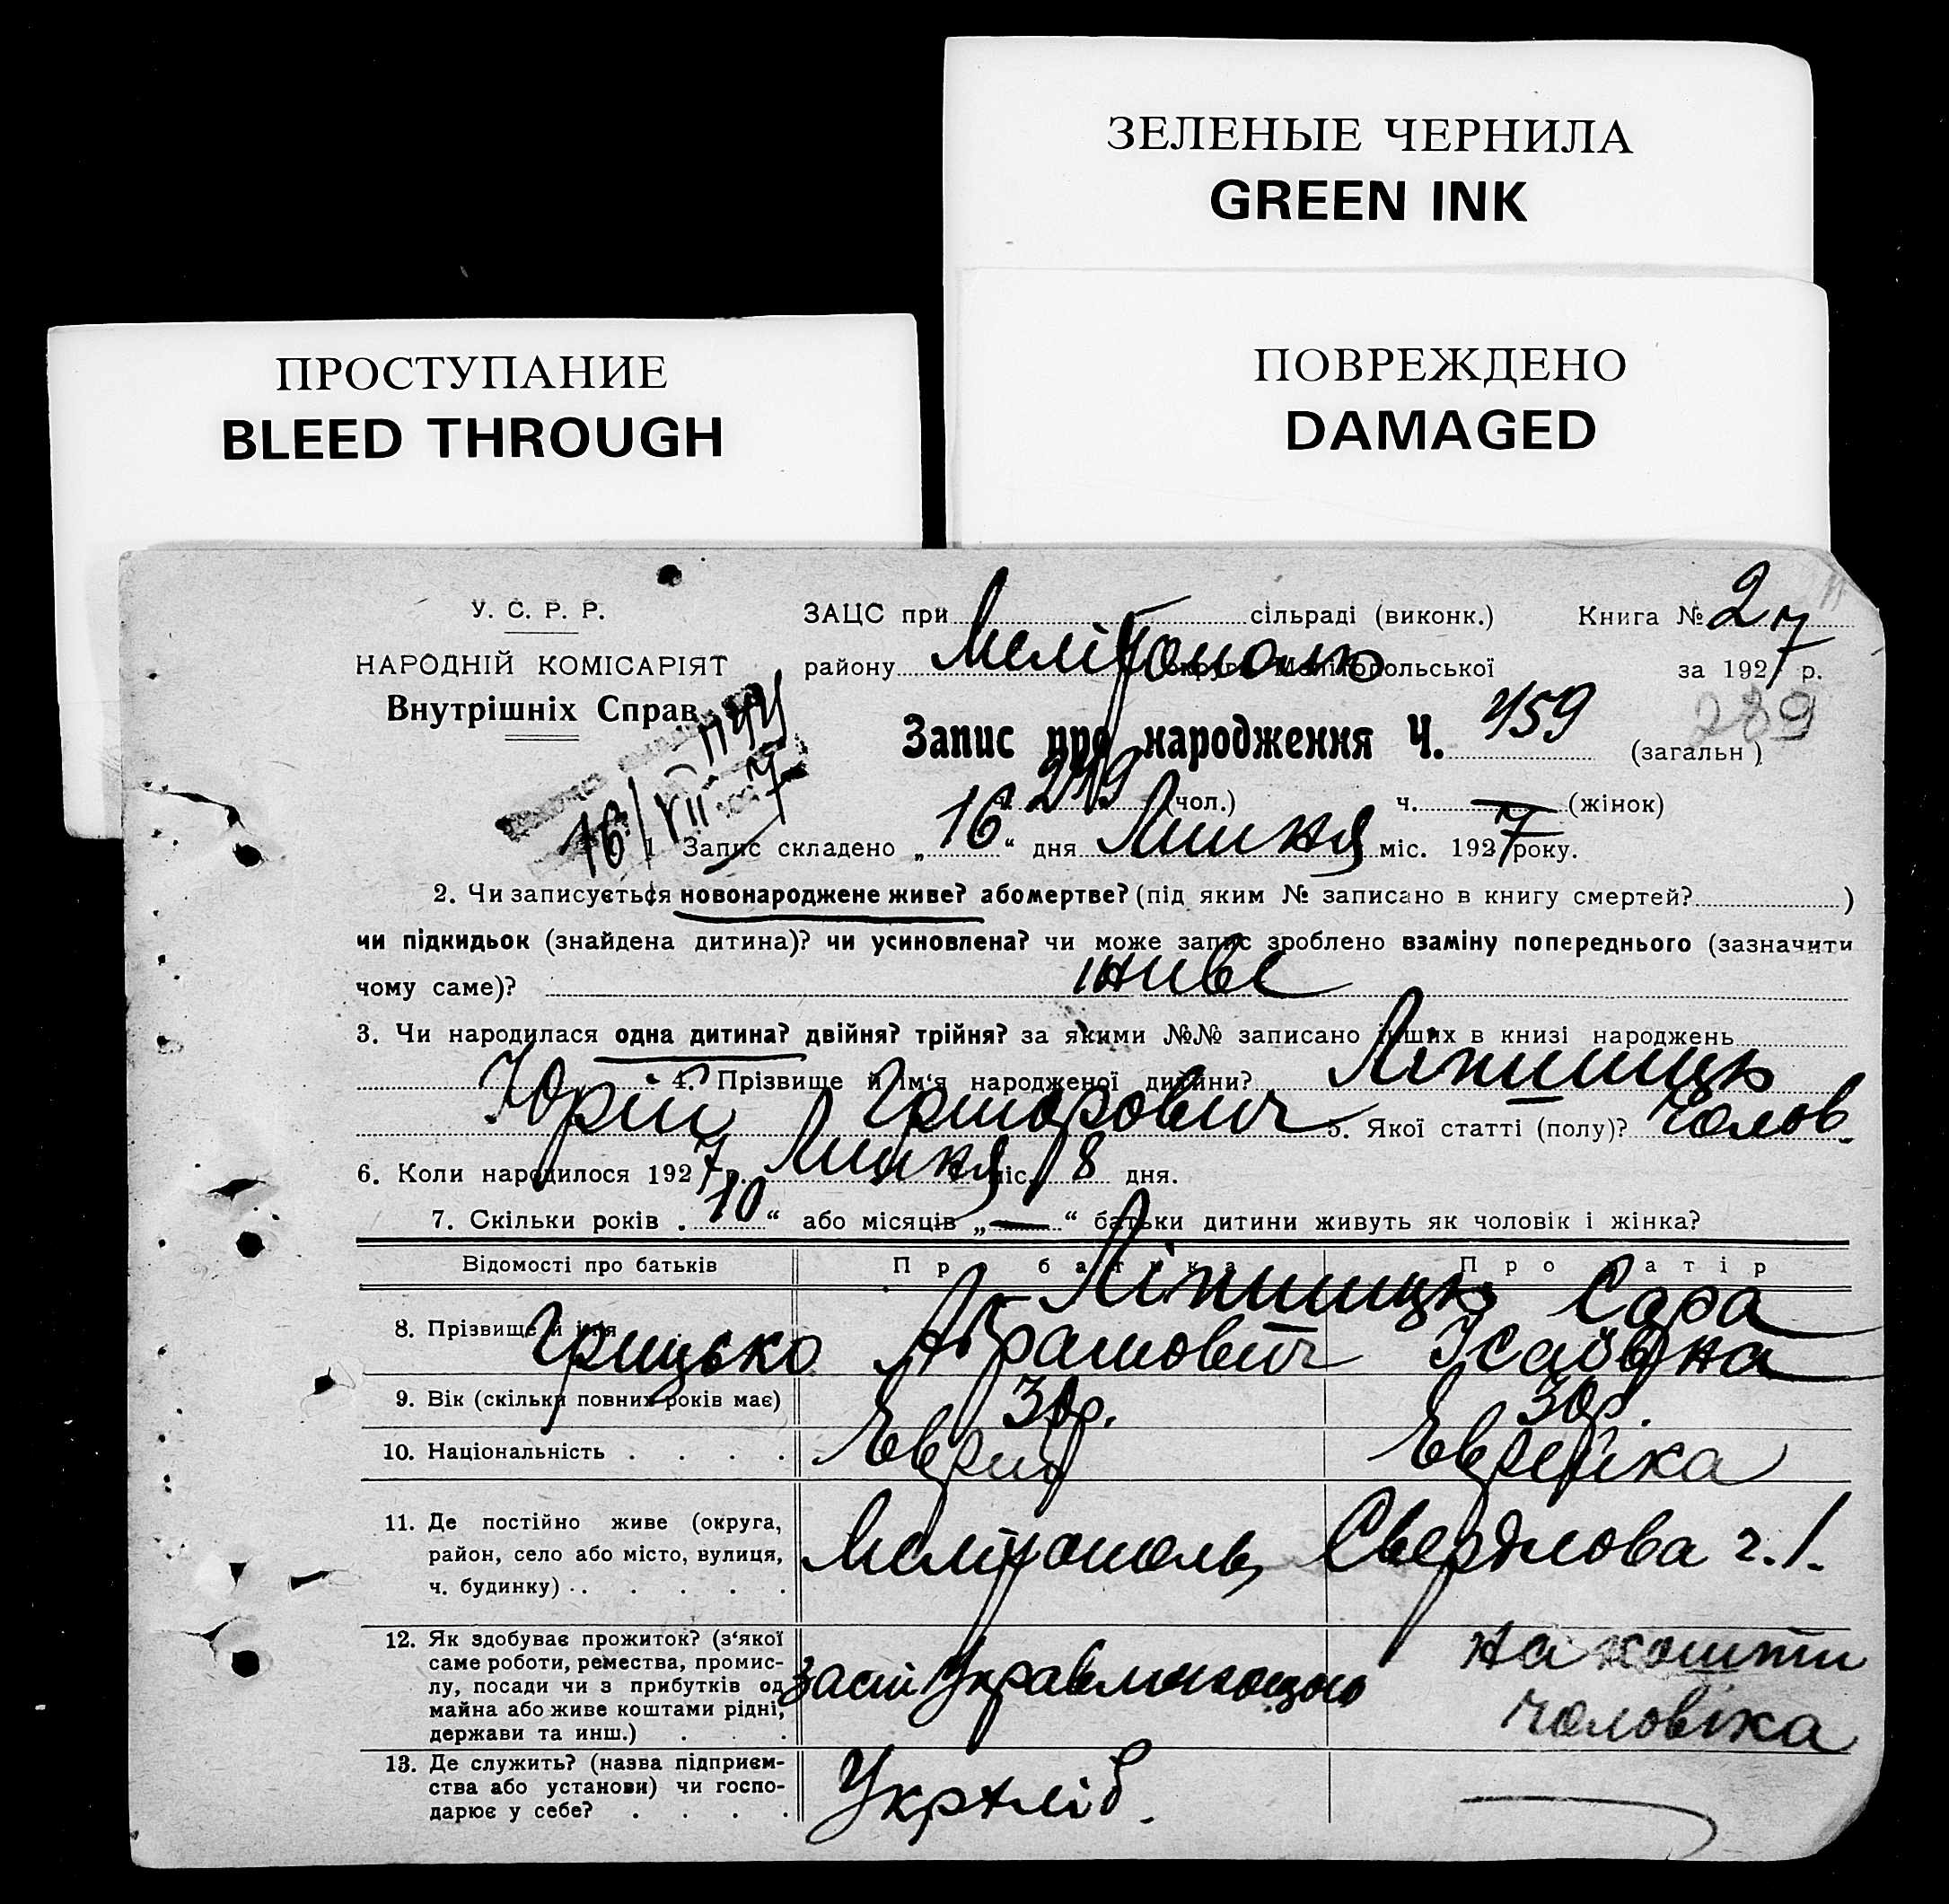 ЗЕЛЕНЫЕ ЧЕРНИЛА
GREEN INK
ПОВРЕЖДЕНО
DAMAGED
ПРОСТУПАНИЕ
BLEED THROUGH
У. С. Р. Р.
НАРОДНІЙ КОМІСАРІЯТ
Внутрішніх Справ
ЗАЦС при сільраді (виконк.) Книга № 2
району Мелітополь округи Мелітопольської за 1927 р.
Запис про народження Ч. 459 (загальн) 289
249 (чол.) ч. — (жінок)
16/VII 7
1 Запис складено „16“ дня Липня міс. 1927 року.
2. Чи записується новонароджене живе? або мертве? (під яким № записано в книгу смертей? )
чи підкидьок (знайдена дитина)? чи усиновлена? чи може запис зроблено взаміну попереднього (зазначити
чому саме)? живе
3. Чи народилася одна дитина? двійня? трійня? за якими №№ записано інших в книзі народжень
4. Прізвище й ім‘я народженої дитини? Ліпшиць
Юрій Григорович 5. Якої статті (полу)? Чолов.
6. Коли народилося 1927 р. Липня міс. 8 дня.
7. Скільки років „10“ або місяців „—“ батьки дитини живуть як чоловік і жінка?
Відомості про батьків Про батька Про матір
8. Прізвище й ім‘я Ліпшиць Сара
Грицько Абрамович Ісаївна
9. Вік (скільки повних років має) 30р. 30р.
10. Національність Єврей Єврейка
11. Де постійно живе (округа,
район, село або місто, вулиця,
ч. будинку) Мелітополь, Свердлова ч. 1.
12. Як здобуває прожиток? (з‘якої
саме роботи, ремества, промис-
лу, посади чи з прибутків од
майна або живе коштами рідні,
держави та инш.) на кошти
чоловіка
13. Де служить? (назва підприєм-
ства або установи) чи госпо-
дарює у себе? Укрхліб. —